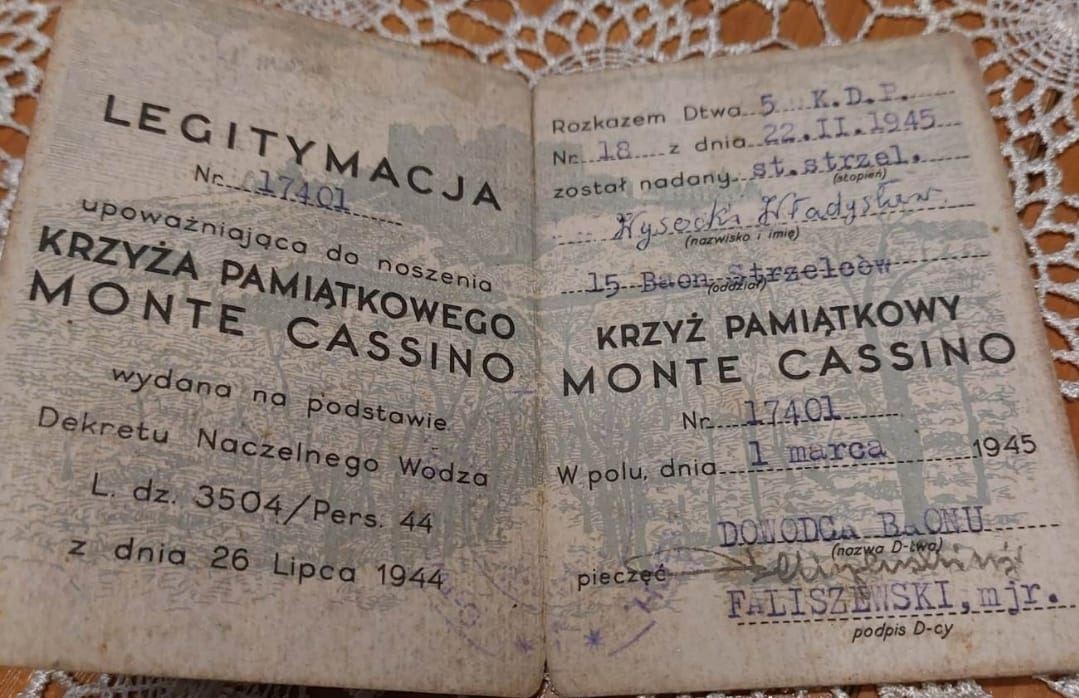 LEGITYMACJA
Nr. 17401
upoważniająca do noszenia
KRZYŻA PAMIĄTKOWEGO
MONTE CASSINO
wydana na podstawie
Dekretu Naczelnego Wodza
L. dz. 3504/Pers. 44
z dnia 26 Lipca 1944
Rozkazem Dtwa 5 K.D.P.
Nr. 18 z dnia 22.II.1945
został nadany st.strzel.
(stopień)
Wysocki Władysław
(nazwisko i imię)
15 Baon Strzelców
(oddział)
KRZYŻ PAMIĄTKOWY
MONTE CASSINO
Nr. 17401
W polu, dnia 1 marca 1945
DOWODCA BaONU
(nazwa D-twa)
pieczęć
FALISZEWSKI, mjr.
podpis D-cy